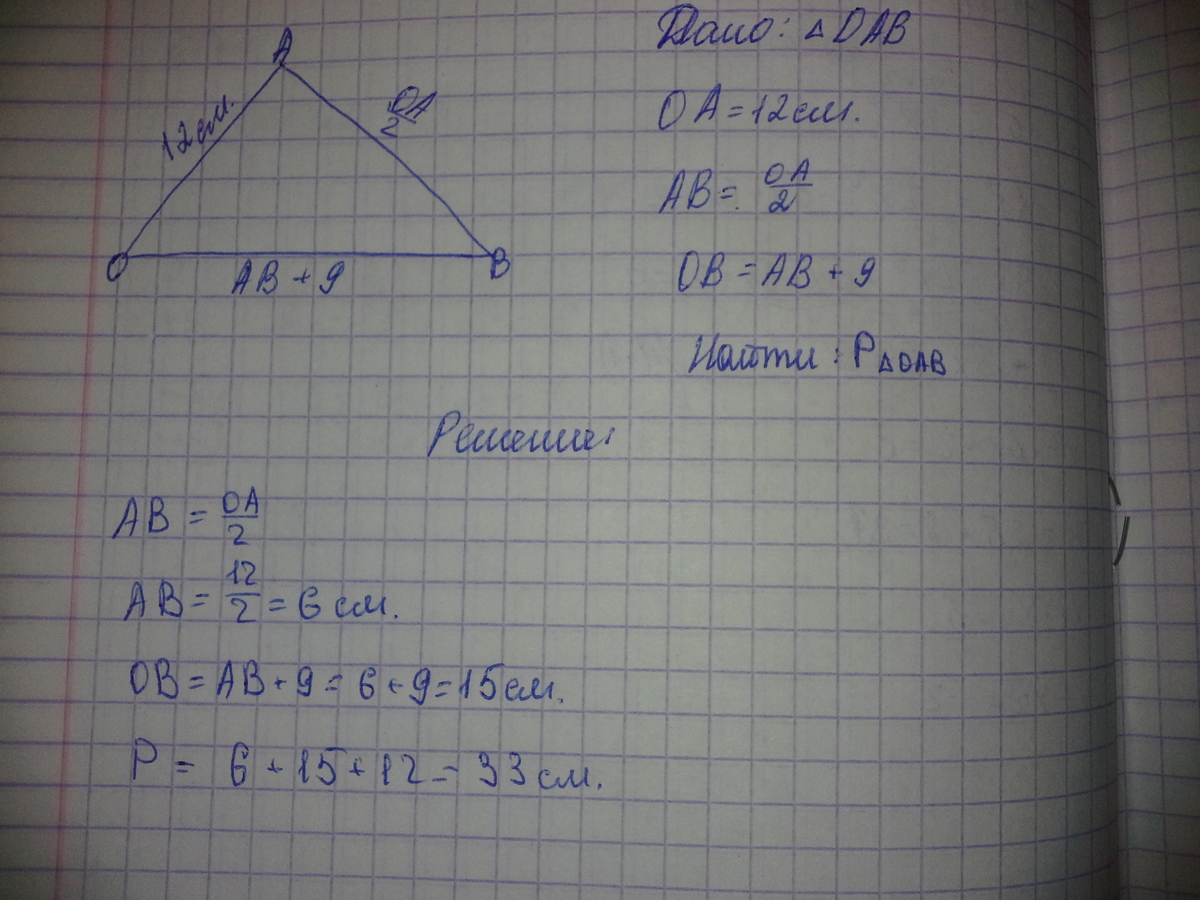 A
12см.
OA
2
O
B
AB + 9
Дано: △OAB
OA = 12см.
AB = OA/2
OB = AB + 9
Найти: P△OAB
Решение:
AB = OA/2
AB = 12/2 = 6 см.
OB = AB + 9 = 6 + 9 = 15 см.
P = 6 + 15 + 12 = 33 см.